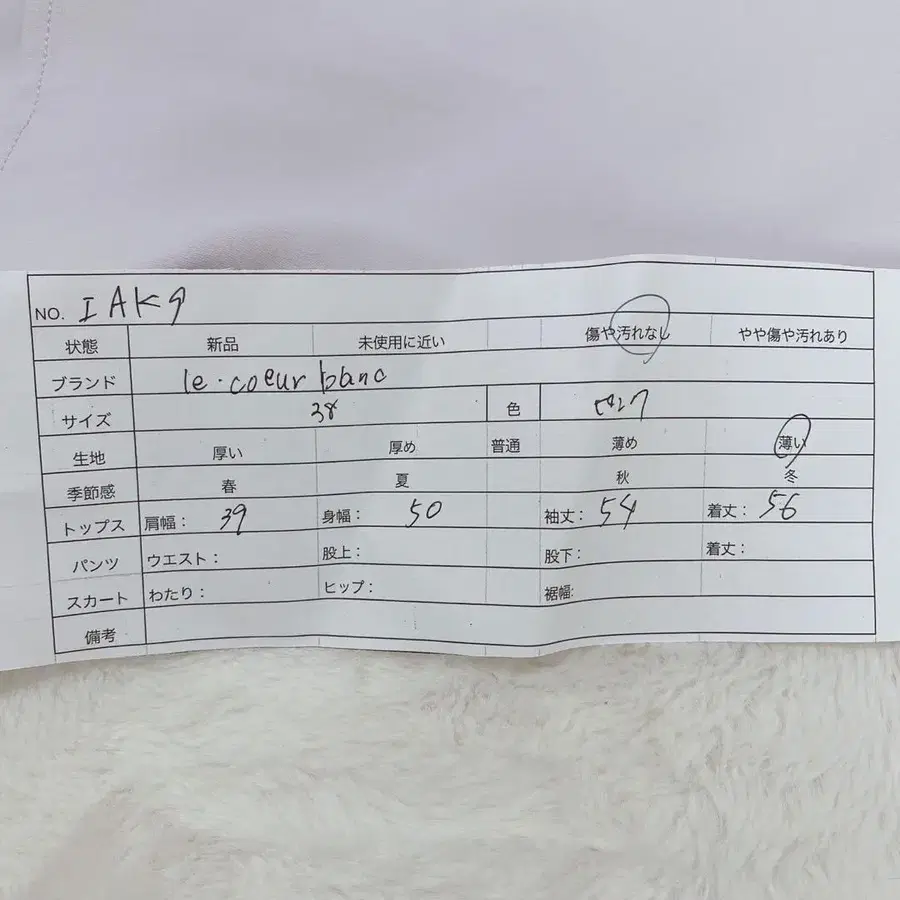 NO. IAK9
状態 新品 未使用に近い 傷や汚れなし やや傷や汚れあり
ブランド le・coeur blanc
サイズ 38 色 ピンク
生地 厚い 厚め 普通 薄め 薄い
季節感 春 夏 秋 冬
トップス 肩幅: 39 身幅: 50 袖丈: 54 着丈: 56
パンツ ウエスト: 股上: 股下: 着丈:
スカート わたり: ヒップ: 裾幅:
備考